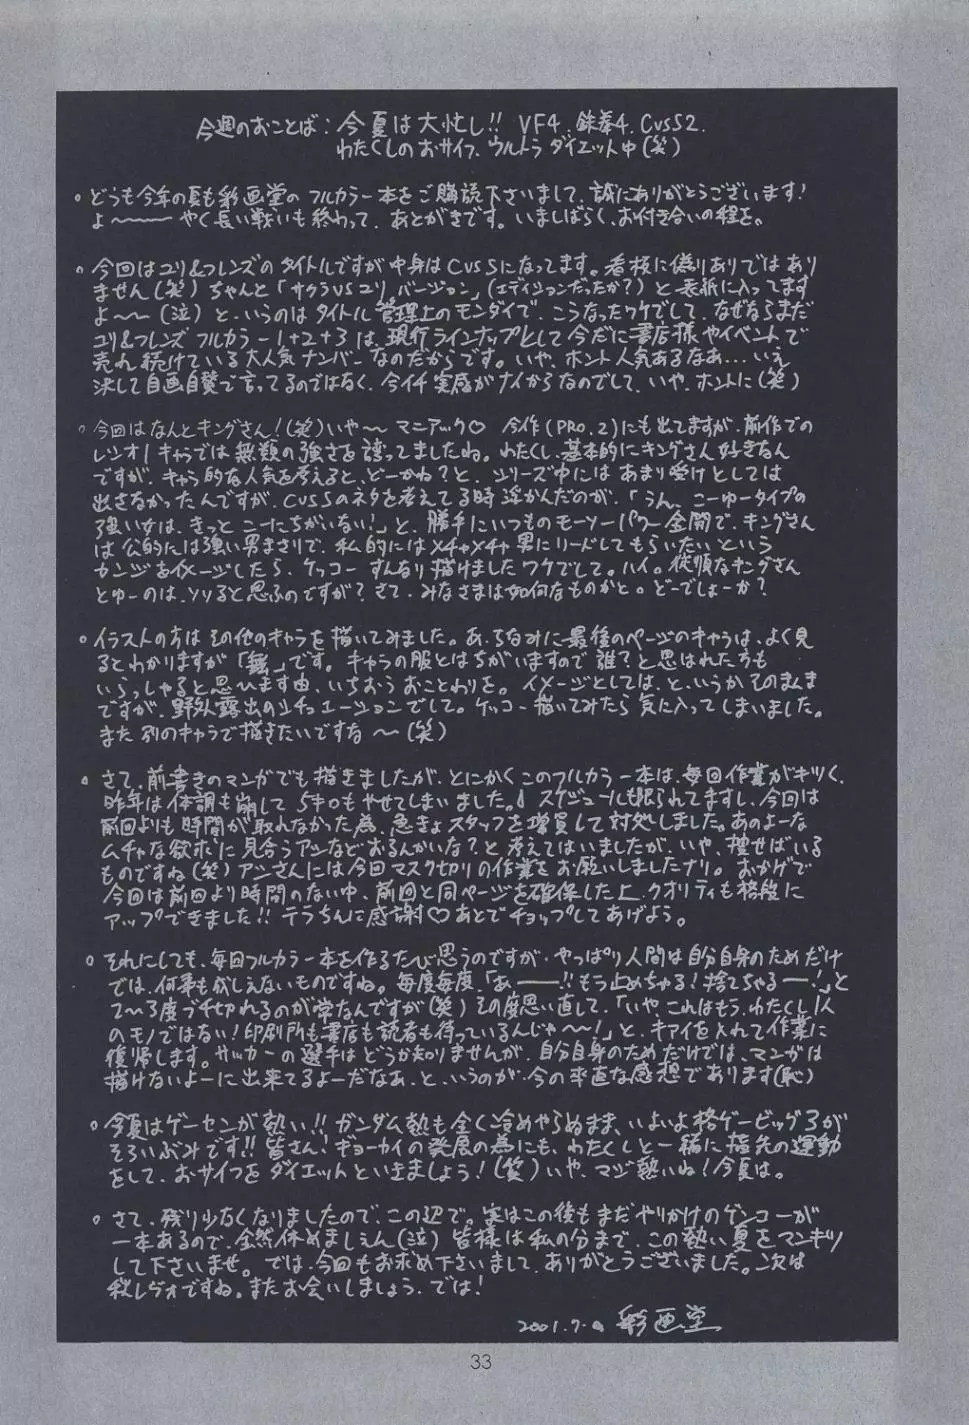 今週のおことば：今夏は大忙し!! VF4、鉄拳4、CVSS2、
わたくしのおサイフ、ウルトラダイエット中(笑)
。どうも今年の夏も彩画堂のフルカラー本をご購読下さいまして、誠にありがとうございます!
よ〜〜〜やく長い戦いも終わって、あとがきです。いましばらく、お付き合いの程を。
。今回はユリ&フレンズのタイトルですが中身はCVSSになってます。看板に偽りありではあり
ません(笑)ちゃんと「サクラVSユリ バージョン」(エディションだったか?)と表紙に入ってます
よ〜〜(泣)というのはタイトル管理上のモンダイで、こうなったワケでして、なぜならまだ
ユリ&フレンズフルカラー1+2+3は、現行ラインナップとして今だに書店様やイベントで
売れ続けている大人気ナンバーなのだからです。いや、ホント人気あるなあ...いえ
決して自画自賛で言ってるのではなく、今イチ実感がナイからなのでして、いや、ホントに(笑)
。今回はなんとキングさん!(笑)いや〜〜マニアック♡ 今作(PRO.2)にも出てますが、前作での
レシオ1キャラでは無類の強さを誇ってましたね。わたくし、基本的にキングさん好きなん
ですが、キャラ的な人気を考えると、どーかね?と、シリーズ中にはあまり受けとしては
出さなかったんですが、CVSSのネタを考えてる時浮かんだのが、「うん、こーゆータイプの
強い女は、きっとこーにちがいない!」と、勝手にいつものモーソーパワー全開で、キングさん
は公的には強い男まさりで、私的にはメチャメチャ男にリードしてもらいたいという
カンジをイメージしたら、ケッコーすんなり描けましたワケでして。ハイ。従順なキングさん
とゆーのは、ソソると思ふのですが?さて、みなさまは如何なものかと。どーでしょーか?
。イラストの方はその他のキャラを描いてみました。あ、ちなみに最後のページのキャラは、よく見
るとわかりますが「舞」です。キャラの服とはちがいますので誰?と思はれた方も
いらっしゃると思ひます由、いちおうおことわりを。イメージとしては、と、いうかそのまんま
ですが、野外露出のシチュエーションでして。ケッコー描いてみたら気に入ってしまいました。
また別のキャラで描きたいですな〜(笑)
。さて、前書きのマンガでも描きましたが、とにかくこのフルカラー本は、毎回作業がキツく、
昨年は体調も崩して5キロもやせてしまいました。スケジュールも限られてますし、今回は
前回よりも時間が取れなかった為、急きょスタッフを増員して対処しました。あのよーな
ムチャな欲求に見合うアシなどおるんかいな?と考えてはいましたが、いや、捜せばいる
ものですね(笑)アシさんには今回マスク切りの作業をお願いしましたナリ。おかげで
今回は前回より時間のない中、前回と同ページを確保した上、クオリティも格段に
アップできました!!テラちんに感謝♡あとでチョップしてあげよう。
。それにしても、毎回フルカラー本を作るたび思うのですが、やっぱり人間は自分自身のためだけ
では、何事も成しえないものですね。毎度毎度、「あ———!!もう止めちゃる!捨てちゃる——!」と
2〜3度ブチ切れるのが常なんですが(笑)その度思い直して、「いや、これはもう、わたくし1人
のモノではない!印刷所も書店も読者も待っているんじゃ〜〜!」と、キアイを入れて作業に
復帰します。サッカーの選手はどうか知りませんが、自分自身のためだけでは、マンガは
描けないよーに出来てるよーだなあ、と、いうのが、今の率直な感想であります(恥)
。今夏はゲーセンが熱い!!ガンダム熱も全く冷めやらぬまま、いよいよ格ゲービッグ3が
そろいぶみです!!皆さん!ギョーカイの発展の為にも、わたくしと一緒に指先の運動
をして、おサイフをダイエットといきましょう!(笑)いや、マジ熱いね!今夏は。
。さて、残り少なくなりましたので、この辺で。実はこの後もまだやりかけのゲンコーが
一本あるので、全然休めましぇん(泣)皆様は私の分まで、この熱い夏をマンキツ
して下さいませ。では、今回もお求め下さいまして、ありがとうございました。次は
秋レヴォですね。またお会いしましょう、では!
2001.7.a 彩画堂
33